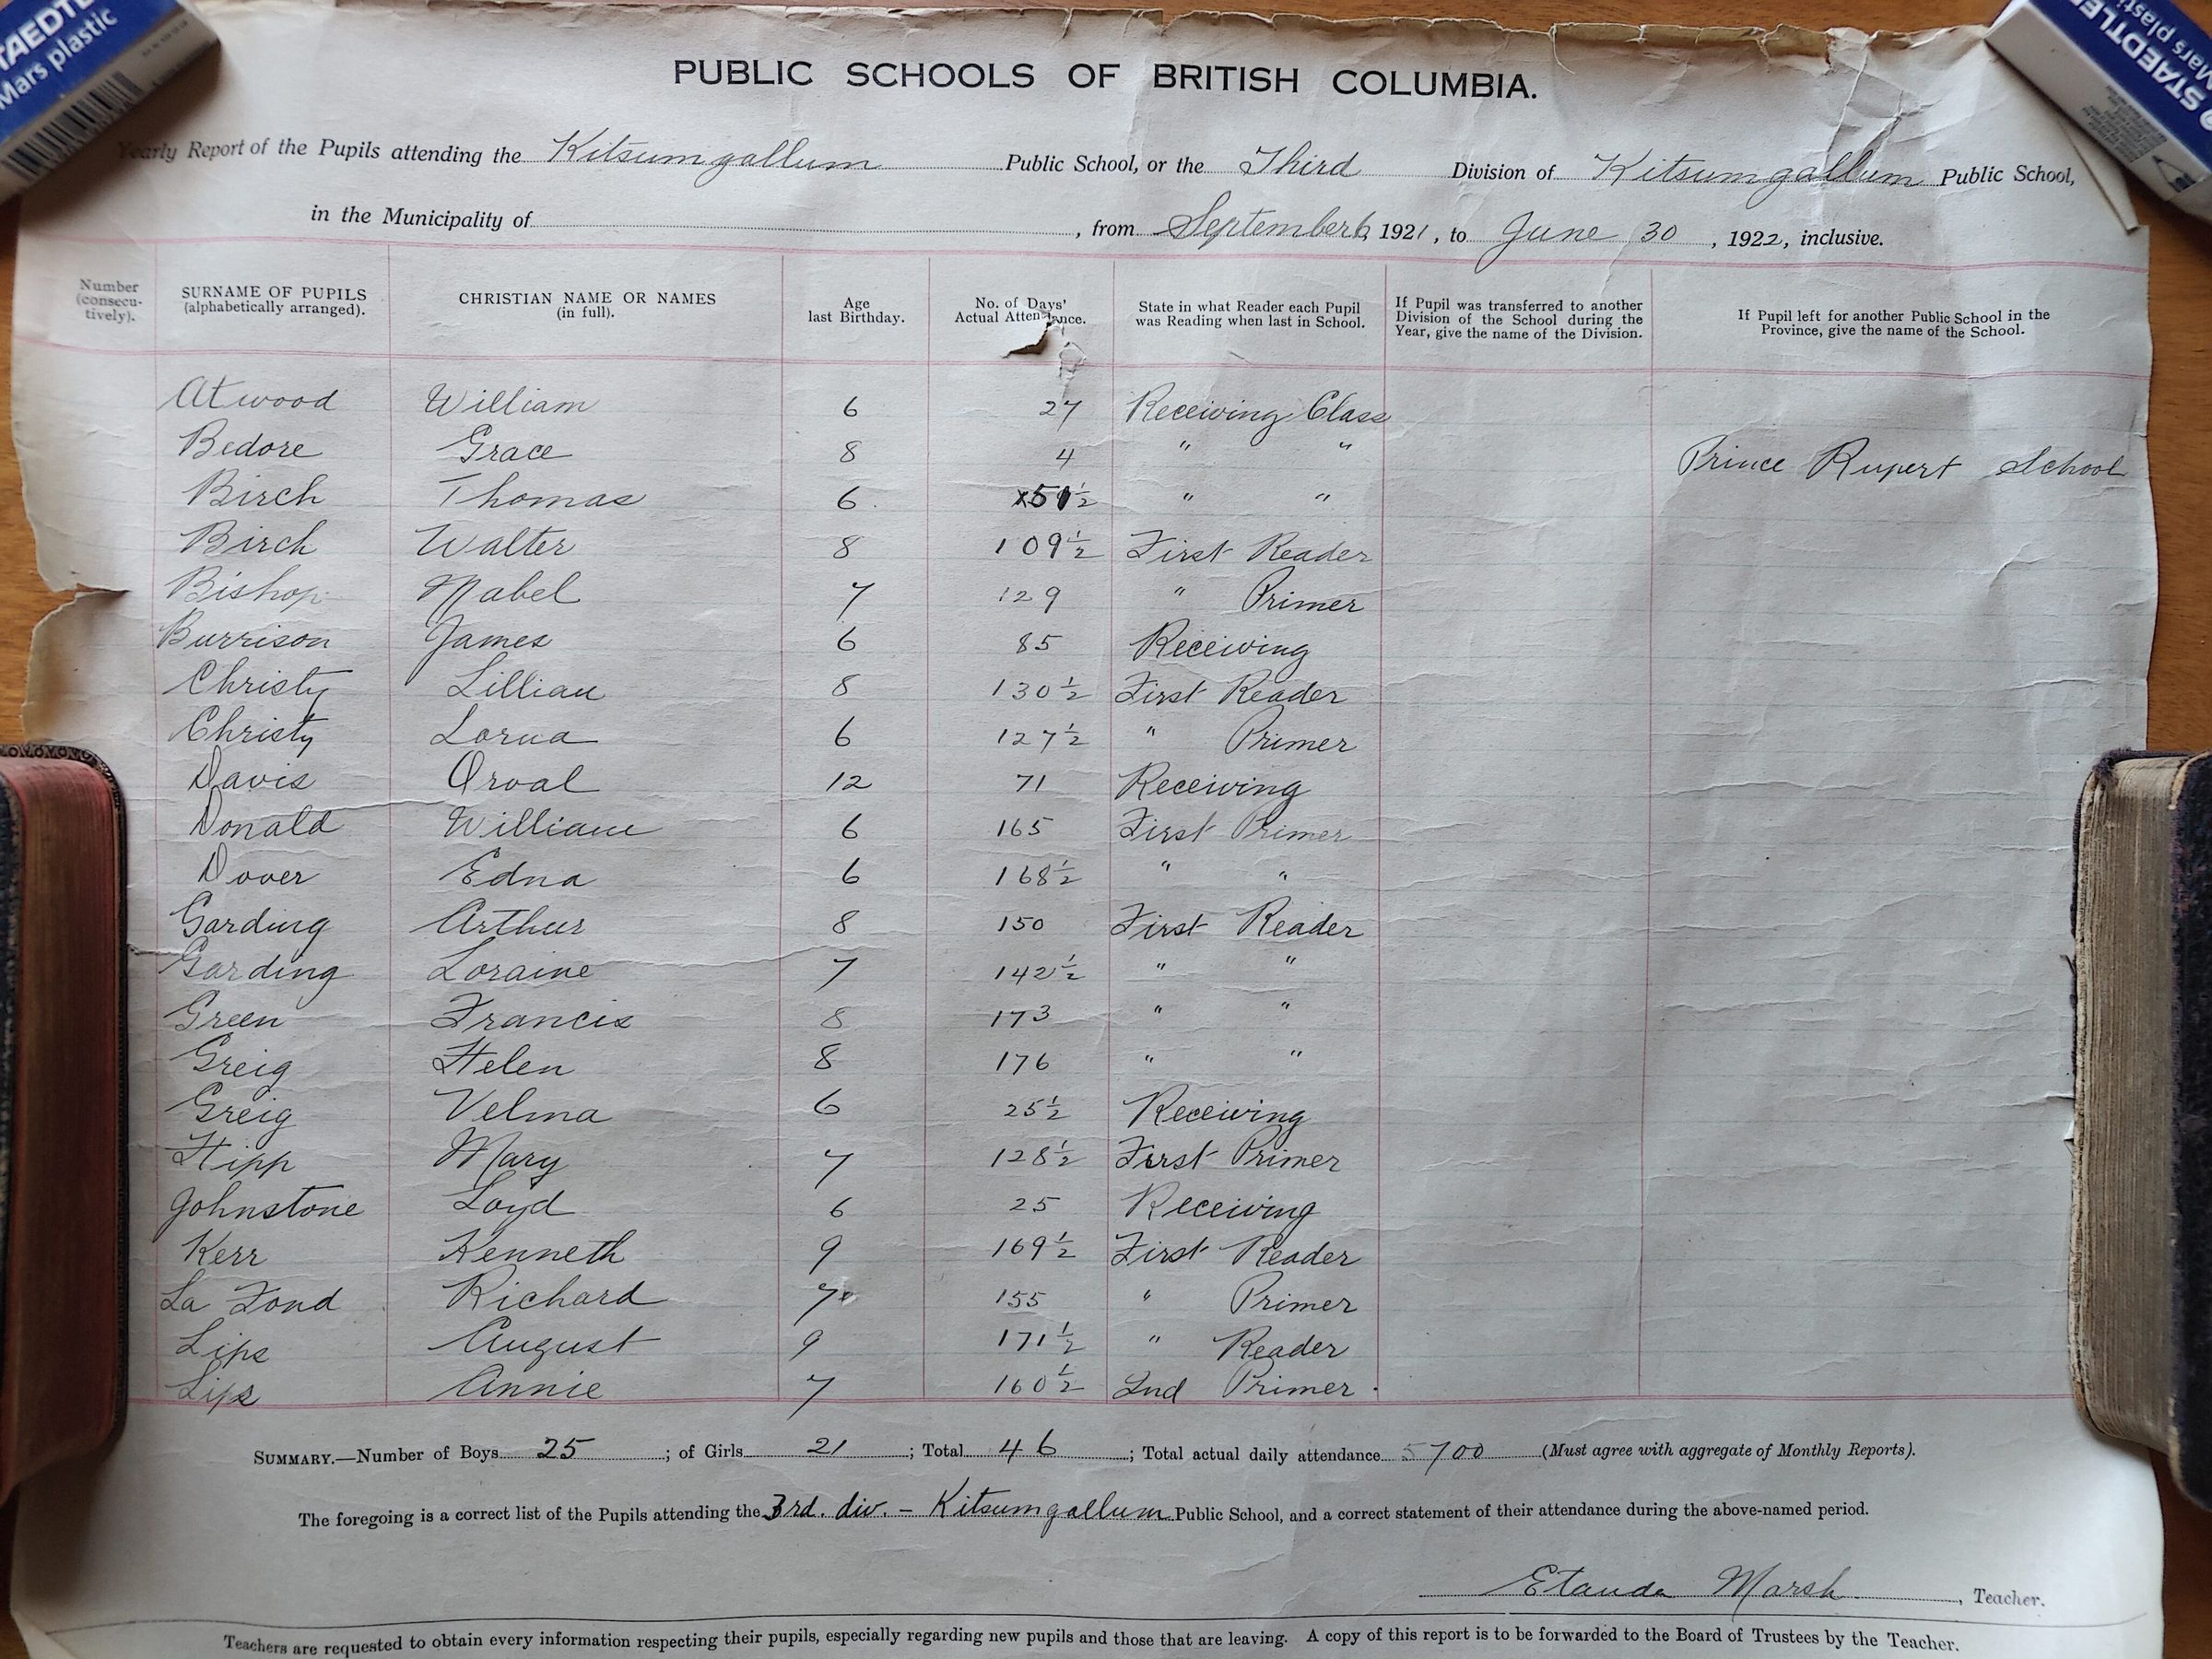 STAEDTLER
Mars plastic
STAEDTLER
Mars plastic
PUBLIC SCHOOLS OF BRITISH COLUMBIA.
Yearly Report of the Pupils attending the Kitsumgallum Public School, or the Third Division of Kitsumgallum Public School,
in the Municipality of , from September 6, 1921, to June 30, 1922, inclusive.
Number (consecutively). SURNAME OF PUPILS (alphabetically arranged). CHRISTIAN NAME OR NAMES (in full). Age last Birthday. No. of Days' Actual Attendance. State in what Reader each Pupil was Reading when last in School. If Pupil was transferred to another Division of the School during the Year, give the name of the Division. If Pupil left for another Public School in the Province, give the name of the School.
Atwood William 6 27 Receiving Class
Bedore Grace 8 4 " " Prince Rupert School
Birch Thomas 6 x51½ " "
Birch Walter 8 109½ First Reader
Bishop Mabel 7 129 " Primer
Burrison James 6 85 Receiving
Christy Lillian 8 130½ First Reader
Christy Lorna 6 127½ " Primer
Davis Orval 12 71 Receiving
Donald William 6 165 First Primer
Dover Edna 6 168½ " "
Garding Arthur 8 150 First Reader
Garding Loraine 7 142½ " "
Green Francis 8 173 " "
Greig Helen 8 176 " "
Greig Velma 6 25½ Receiving
Hipp Mary 7 128½ First Primer
Johnstone Loyd 6 25 Receiving
Kerr Kenneth 9 169½ First Reader
La Fond Richard 7 155 " Primer
Lips August 9 171½ " Reader
Lips Annie 7 160½ 2nd Primer.
SUMMARY.—Number of Boys 25; of Girls 21; Total 46; Total actual daily attendance 5700 (Must agree with aggregate of Monthly Reports).
The foregoing is a correct list of the Pupils attending the 3rd. div. - Kitsumgallum Public School, and a correct statement of their attendance during the above-named period.
Etanda Marsh, Teacher.
Teachers are requested to obtain every information respecting their pupils, especially regarding new pupils and those that are leaving. A copy of this report is to be forwarded to the Board of Trustees by the Teacher.